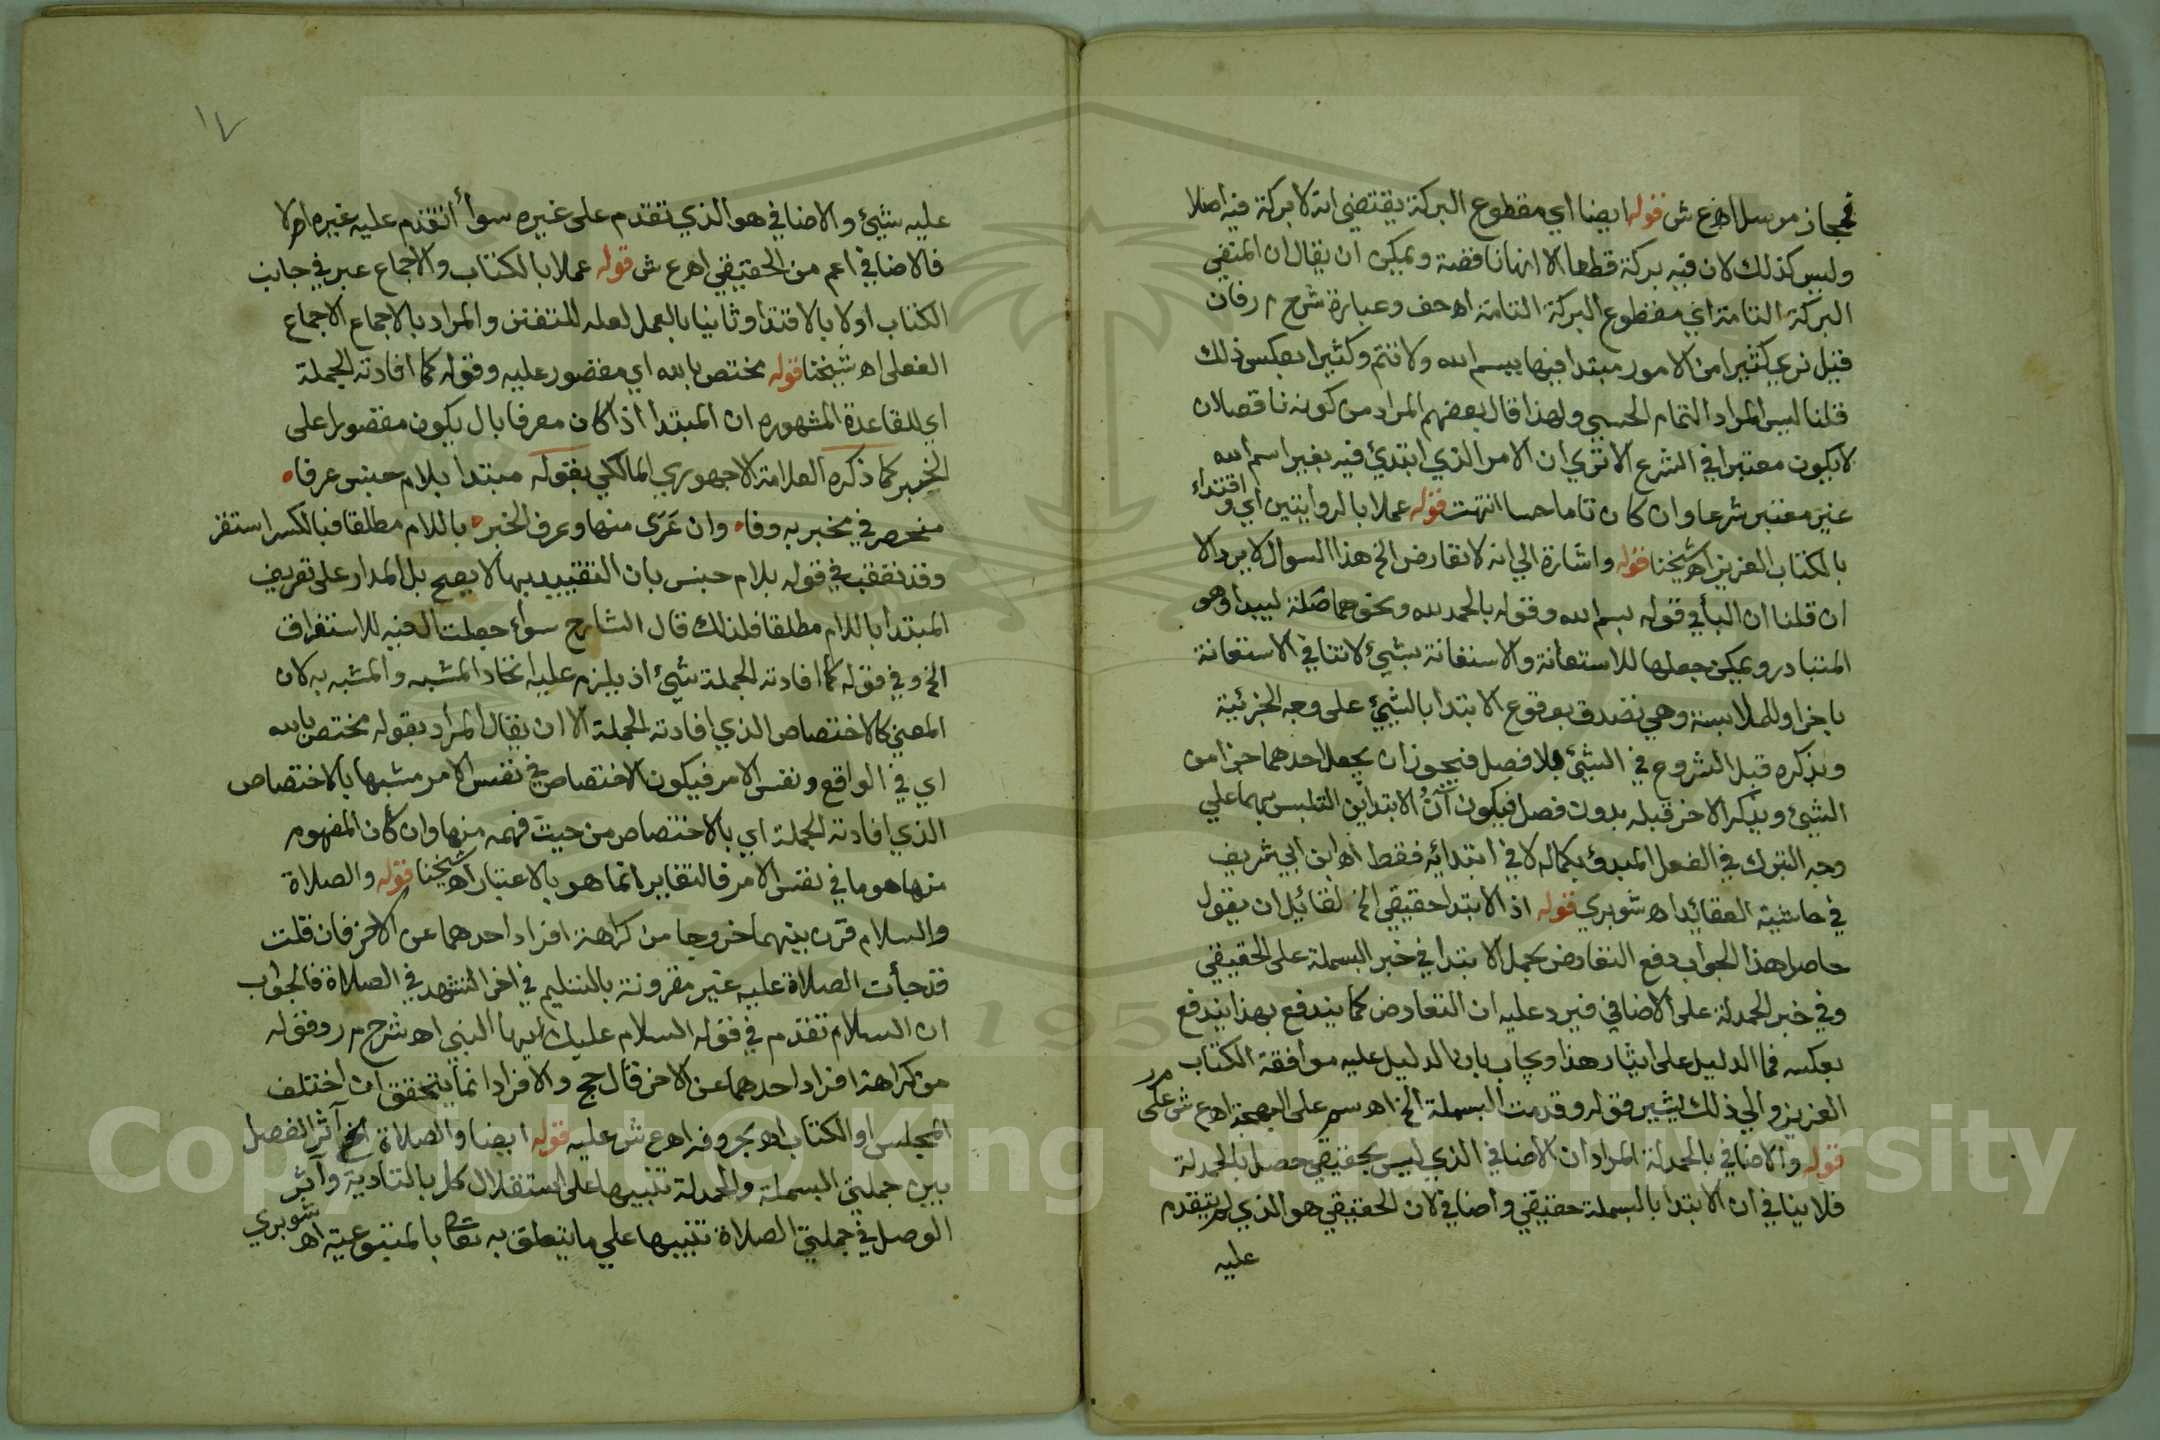 فمجاز مرسل اهـ ع ش قوله ايضا اي مقطوع البركة يقتضي انه لا بركة فيه اصلا
وليس كذلك لان فيه بركة قطعا الا انها ناقصة ويمكن ان يقال ان المنفي
البركة التامة اي مقطوع البركة التامة اهـ حف وعبارة شرح م ر فان
قيل نري كثيرا من الامور مبتدا فيها ببسم الله ولا تتم وكثيرا بعكس ذلك
قلنا ليس المراد التمام الحسي ولهذا قال بعضهم المراد من كونه ناقصا ان
لا يكون معتبرا في الشرع الا تري ان الامر الذي ابتدئ فيه بغير اسم الله
غير معتبر شرعا وان كان تاما حسا انتهت قوله عملا بالروايتين اي واقتداء
بالكتاب العزيز اهـ شيخنا قوله واشارة الي انه لا تعارض الخ هذا السوال لا يرد الا
ان قلنا ان البأ في قوله ببسم الله وقوله بالحمد لله ونحوهما صلة ليبدا وهو
المتبادر ويمكن جعلها للاستعانة والاستعانة بشيئ لا تنافي الاستعانة
باخر او للملابسة وهي تصدق بوقوع الابتدا بالشيئ على وجه الجزئية
وبذكره قبل الشروع في الشيئ بلا فصل فيجوز ان يجعل احدهما جزا من
الشيئ ويذكر الاخر قبله بدون فصل فيكون آن الابتدائين التلبس بهما علي
وجه التبرك في الفعل المبدوء بكماله لا في ابتدائه فقط اهـ ابن ابي شريف
في حاشية العقائد اهـ شوبري قوله اذ الابتدا حقيقي الخ لقائيل ان يقول
حاصل هذا الجواب دفع التعارض بحمل الابتدا في خبر البسملة على الحقيقي
وفي خبر الحمدلة على الاضافي فيرد عليه ان التعارض كما يندفع بهذا يندفع
بعكسه فما الدليل على ايثار هذا ويجاب بان الدليل عليه موافقة الكتاب
العزيز والي ذلك يشير قوله وقدمت البسملة الخ اهـ سم على البهجة اهـ ع ش على م ر
قوله والاضافي بالحمدلة المراد ان الاضافي الذي ليس بحقيقي حصل بالحمدلة
فلا ينافي ان الابتدا بالبسملة حقيقي واضافي لان الحقيقي هو الذي لم يتقدم
عليه
١٧
عليه شيئ والاضافي هو الذي تقدم على غيره سوأ أتقدم عليه غيره ام لا
فالاضافي اعم من الحقيقي اهـ ع ش قوله عملا بالكتاب والاجماع عبر في جانب
الكتاب اولا بالاقتدا وثانيا بالعمل لعله للتفنن والمراد بالاجماع الاجماع
الفعلى اهـ شيخنا قوله مختص بالله اي مقصور عليه وقوله كما افادته الجملة
اي للقاعدة المشهوره ان المبتدأ اذا كان معرفا بال يكون مقصورا على
الخبر كما ذكره العلامة الاجهوري المالكي بقوله مبتدا بلام جنس عرفا
منحصر في مخبر به وفا وان عَرَى منها وعرف الخبر باللام مطلقا فبالكسر استقر
وقد تعقب في قوله بلام جنس بان التقييد بها لا يصح بل المدار على تعريف
المبتدا باللام مطلقا فلذلك قال الشارح سوأ جعلت ال فيه للاستغراق
الخ وفي قوله كما افادته الجملة شيئ اذ يلزم عليه اتحاد المشبه والمشبه به لان
المعني كالاختصاص الذي افادته الجملة الا ان يقال المراد بقوله مختص بالله
اي في الواقع ونفس الامر فيكون الاختصاص في نفس الامر مشبها بالاختصاص
الذي افادته الجملة اي بالاختصاص من حيث فهمه منها وان كان المفهوم
منها هو ما في نفس الامر فالتغاير انما هو بالاعتبار اهـ شيخنا قوله والصلاة
والسلام قرن بينهما خروجا من كراهة افراد احدهما عن الاخر فان قلت
قد جأت الصلاة عليه غير مقرونة بالتسليم في اخر التشهد في الصلاة فالجواب
ان السلام تقدم في قوله السلام عليك ايها النبي اهـ شرح م ر وقوله
من كراهة افراد احدهما عن الاخر قال حج والافراد انما يتحقق ان اختلف
المجلس او الكتاب اهـ بحروفه اهـ ع ش عليه قوله ايضا والصلاة الخ آثر الفصل
بين جملتي البسملة والحمدلة تنبيها على استقلال كل بالتادية وآثر
الوصل في جملتي الصلاة تنبيها علي ما يتعلق به تعالي بالمتبوعية اهـ شوبري
Copyright © King Saud University
195